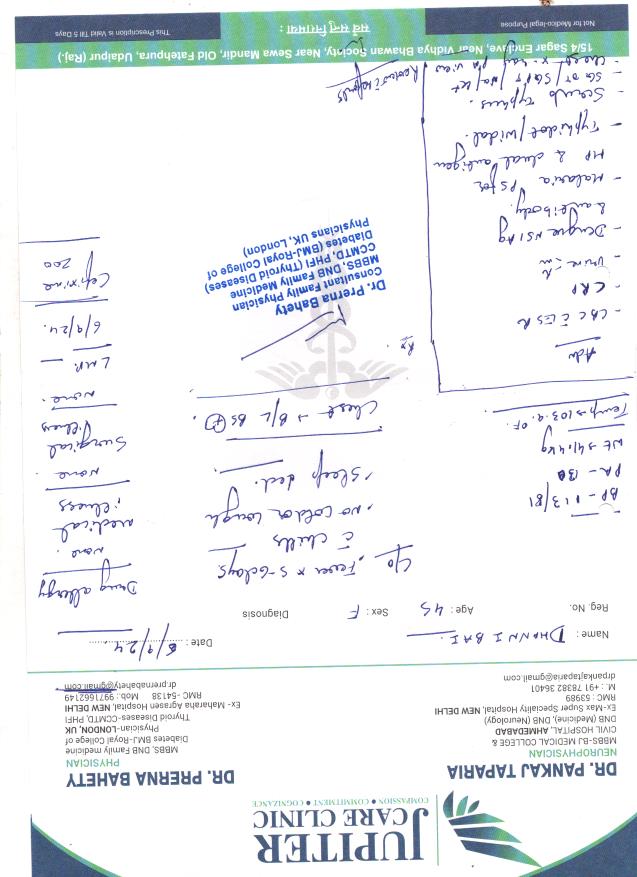 JUPITER
CARE CLINIC
COMPASSION • COMMITMENT • COGNIZANCE
DR. PANKAJ TAPARIA
NEUROPHYSICIAN
MBBS-BJ MEDICAL COLLEGE &
CIVIL HOSPITAL, AHMEDABAD
DNB (Medicine), DNB (Neurology)
Ex-Max Super Speciality Hospital, NEW DELHI
RMC : 69989
M. : +91 78382 36401
drpankajtaparia@gmail.com
DR. PRERNA BAHETY
PHYSICIAN
MBBS, DNB Family medicine
Diabetes BMJ-Royal College of
Physician-LONDON, UK
Thyroid Diseases-CCMTD, PHFI
Ex- Maharaha Agrasen Hospital, NEW DELHI
RMC -54138 Mob.: 9971662149
dr.prernabahety@gmail.com
Name : DHANNI BAI. Date : 6/9/24
Reg. No. Age : 45 Sex : F Diagnosis
BP - 113/81
PR - 130
Wt - 41.4 kg
Temp → 103.9.°F.
Adv
- CBC c̄ ESR
- CRP
- Urine
- Dengue NS1 Ag
& antibody.
- Malaria PS for
MP & dual antigen
- Typhidot/widal.
- Scrub Typhus.
- SGOT/SGPT/
- Chest x-ray PA view
C/o, Fever x 5-6days
c̄ chills
, no cold or cough
, Sleep dec.
Chest → B/L BS (+).
Rx
Dr. Prerna Bahety
Consultant Family Physician
MBBS, DNB, Family Medicine
CCMTD, PHFI (Thyroid Diseases)
Diabetes (BMJ-Royal College of
Physicians UK, London)
Review c̄ reports
Drug allergy
none.
medical
illness
none.
Surgical
illness
none.
LMP. -
6/9/24.
Cefixime
200
15/4 Sagar Enclave, Near Vidhya Bhawan Society, Near Sewa Mandir, Old Fatehpura, Udaipur (Raj.)
Not for Medico-legal Purpose
सर्वे सन्तु निरामया :
This Prescription is Valid Till 5 Days